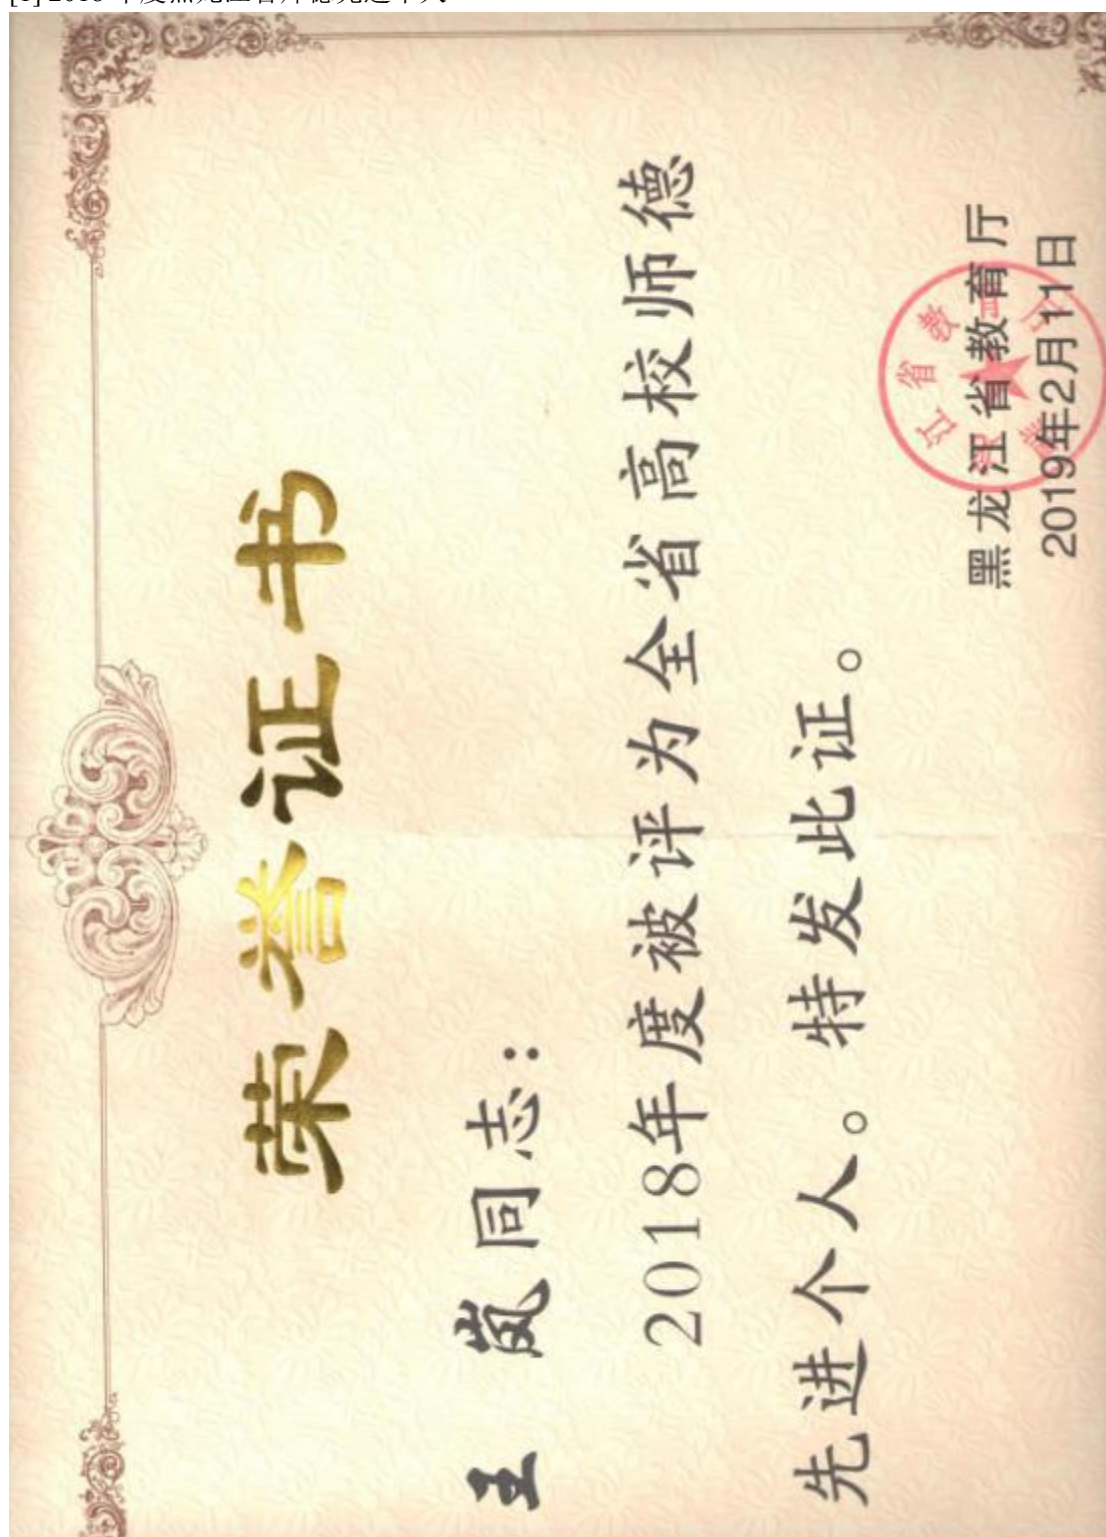 荣誉证书
王 岚同志：
2018年度被评为全省高校师德
先进个人。特发此证。
黑龙江省教育厅
2019年2月11日